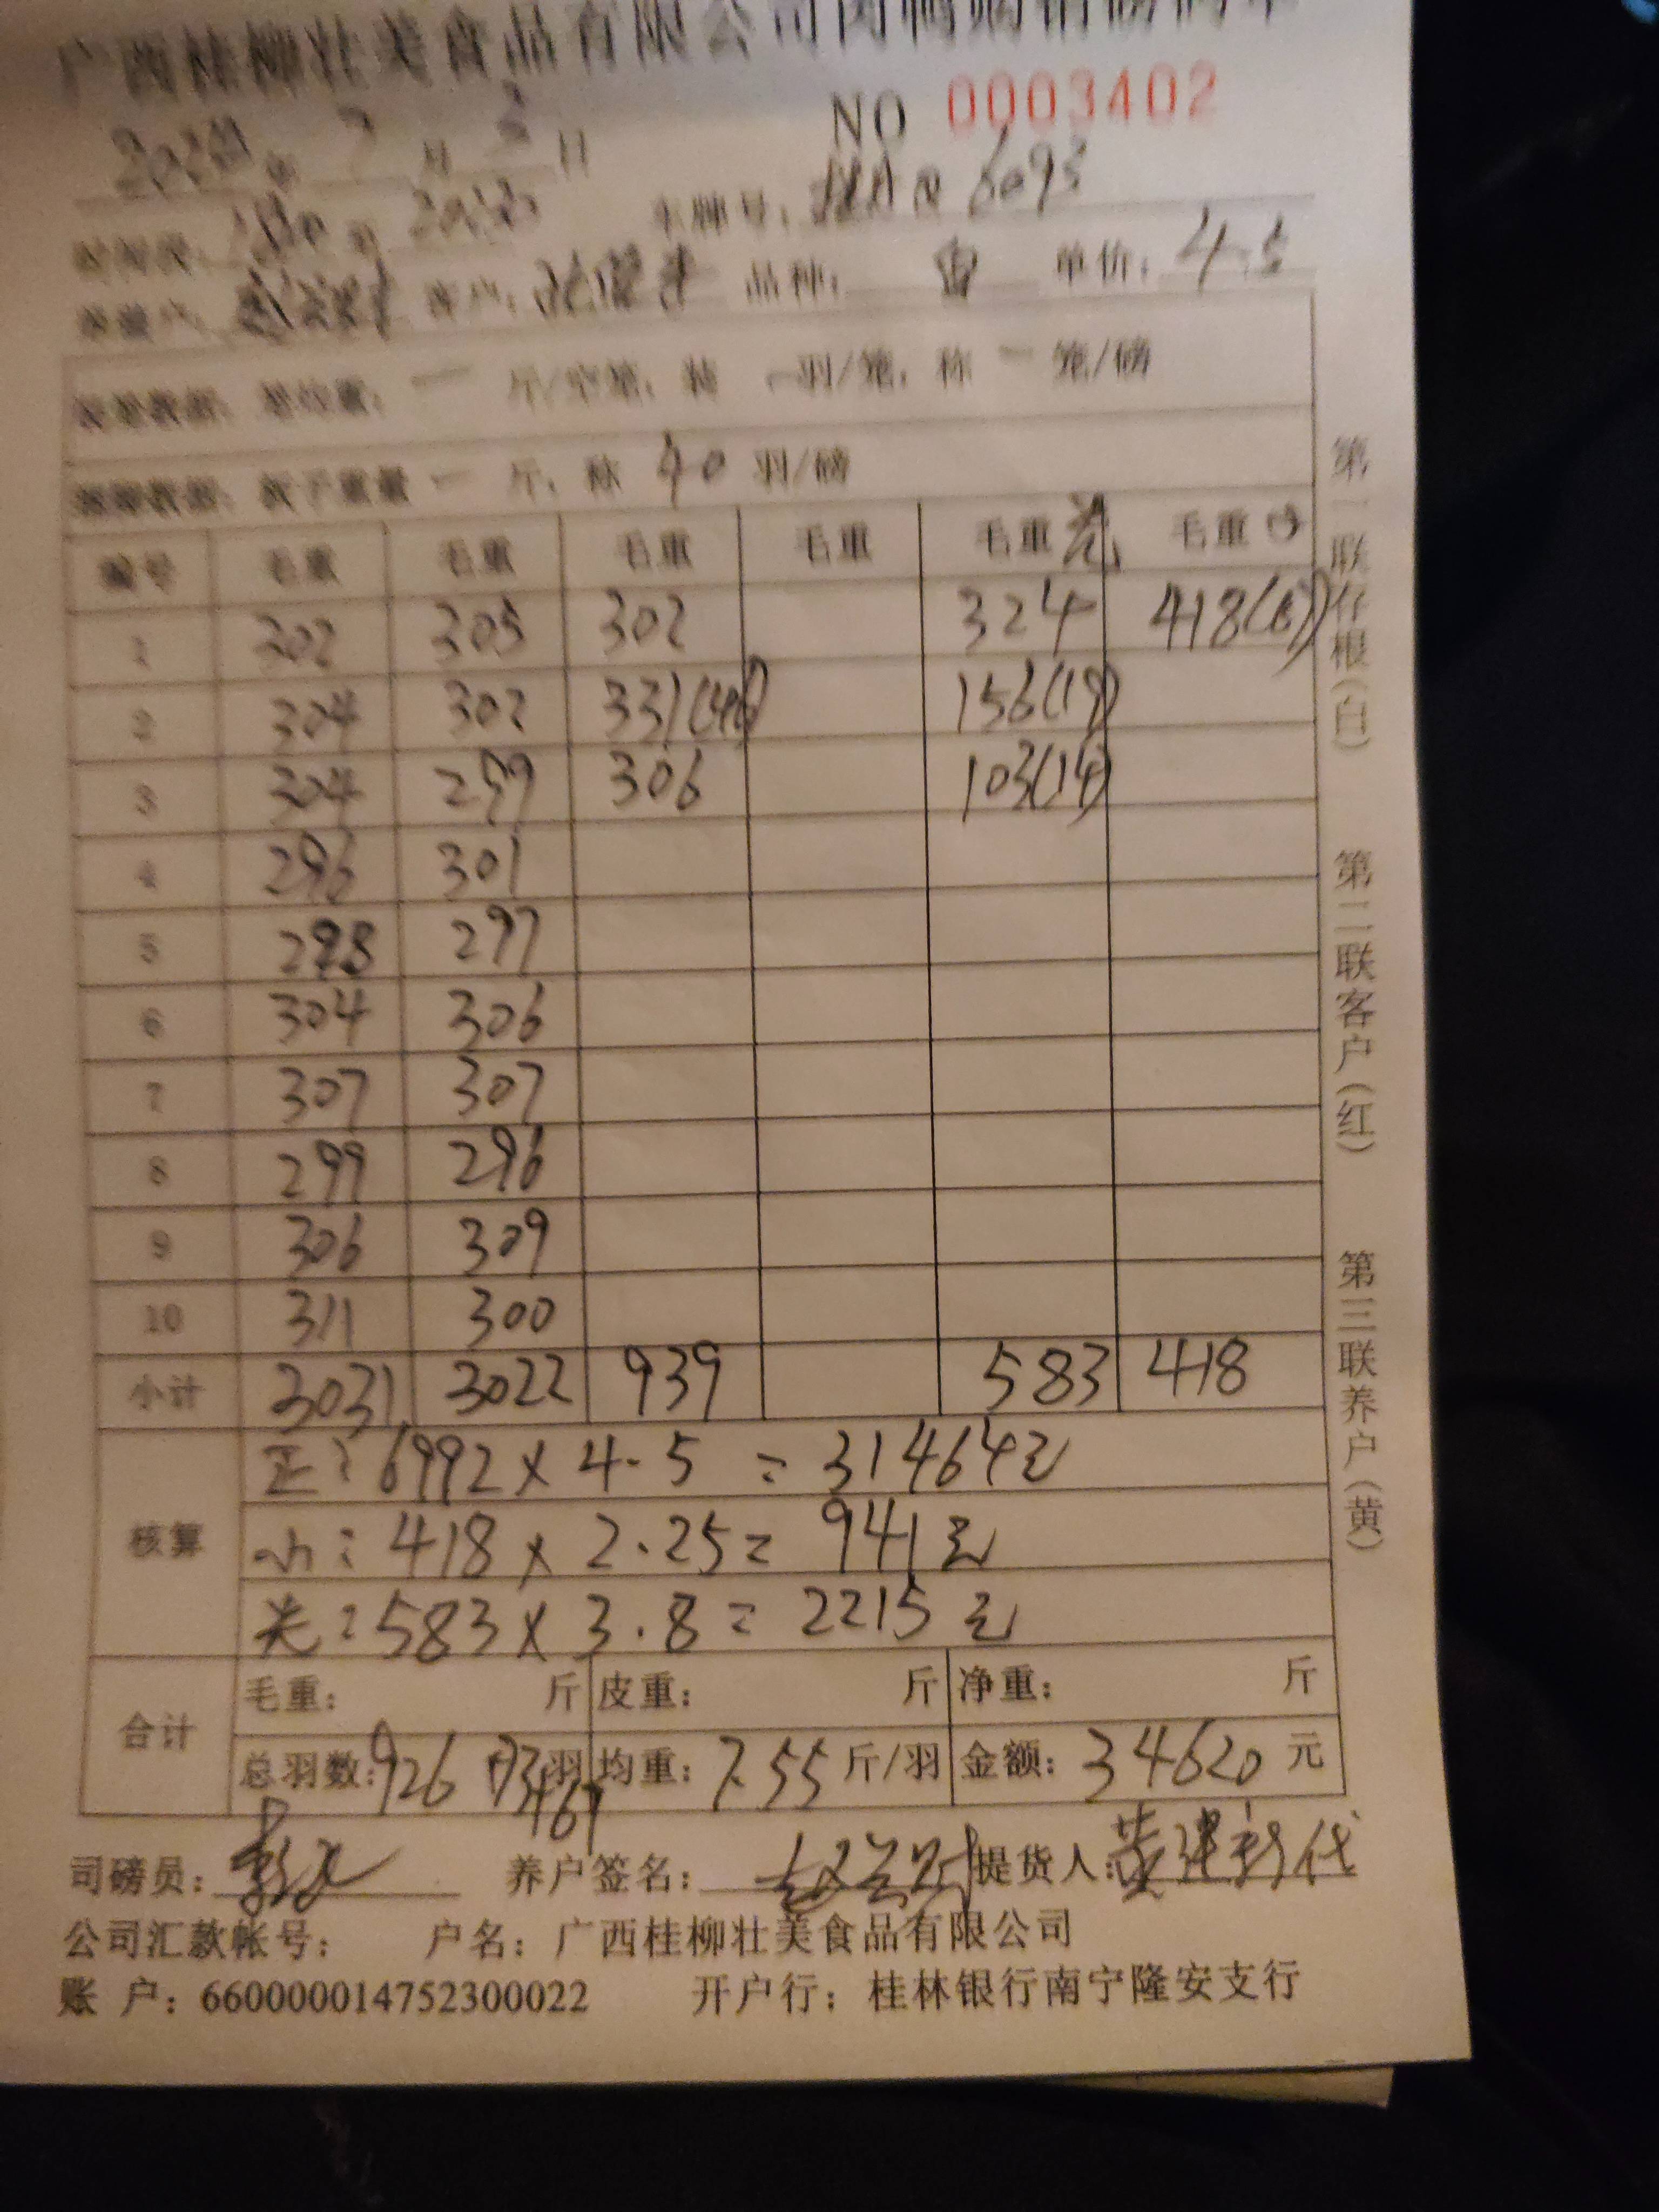 广西桂柳壮美食品有限公司肉鸭购销磅码单
NO 0003402
年 7 月 日
车牌号: 6093
客户: 品种: 单价: 4.5
斤/空笼, 装 一羽/笼, 称 一 笼/磅
板子重量 一 斤, 称 40 羽/磅
编号 毛重 毛重 毛重 毛重 毛重 光 毛重
1 302 305 302 324 418
2 304 302 331(44) 156(19)
3 304 299 306 103(14)
4 296 301
5 298 297
6 304 306
7 307 307
8 299 296
9 306 309
10 311 300
小计 3031 3022 939 583 418
核算
正: 6992 × 4.5 = 31464元
小: 418 × 2.25 = 941元
光: 583 × 3.8 = 2215 元
合计
毛重: 斤 皮重: 斤 净重: 斤
总羽数: 926 羽 均重: 7.55 斤/羽 金额: 34620 元
司磅员: 养户签名: 提货人:
公司汇款帐号: 户名: 广西桂柳壮美食品有限公司
账 户: 660000014752300022 开户行: 桂林银行南宁隆安支行
第一联存根(白) 第二联客户(红) 第三联养户(黄)